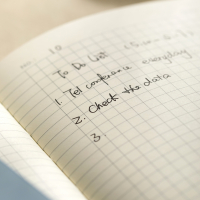 To Do List
1. Tel conference everyday
2. Check the data
3.